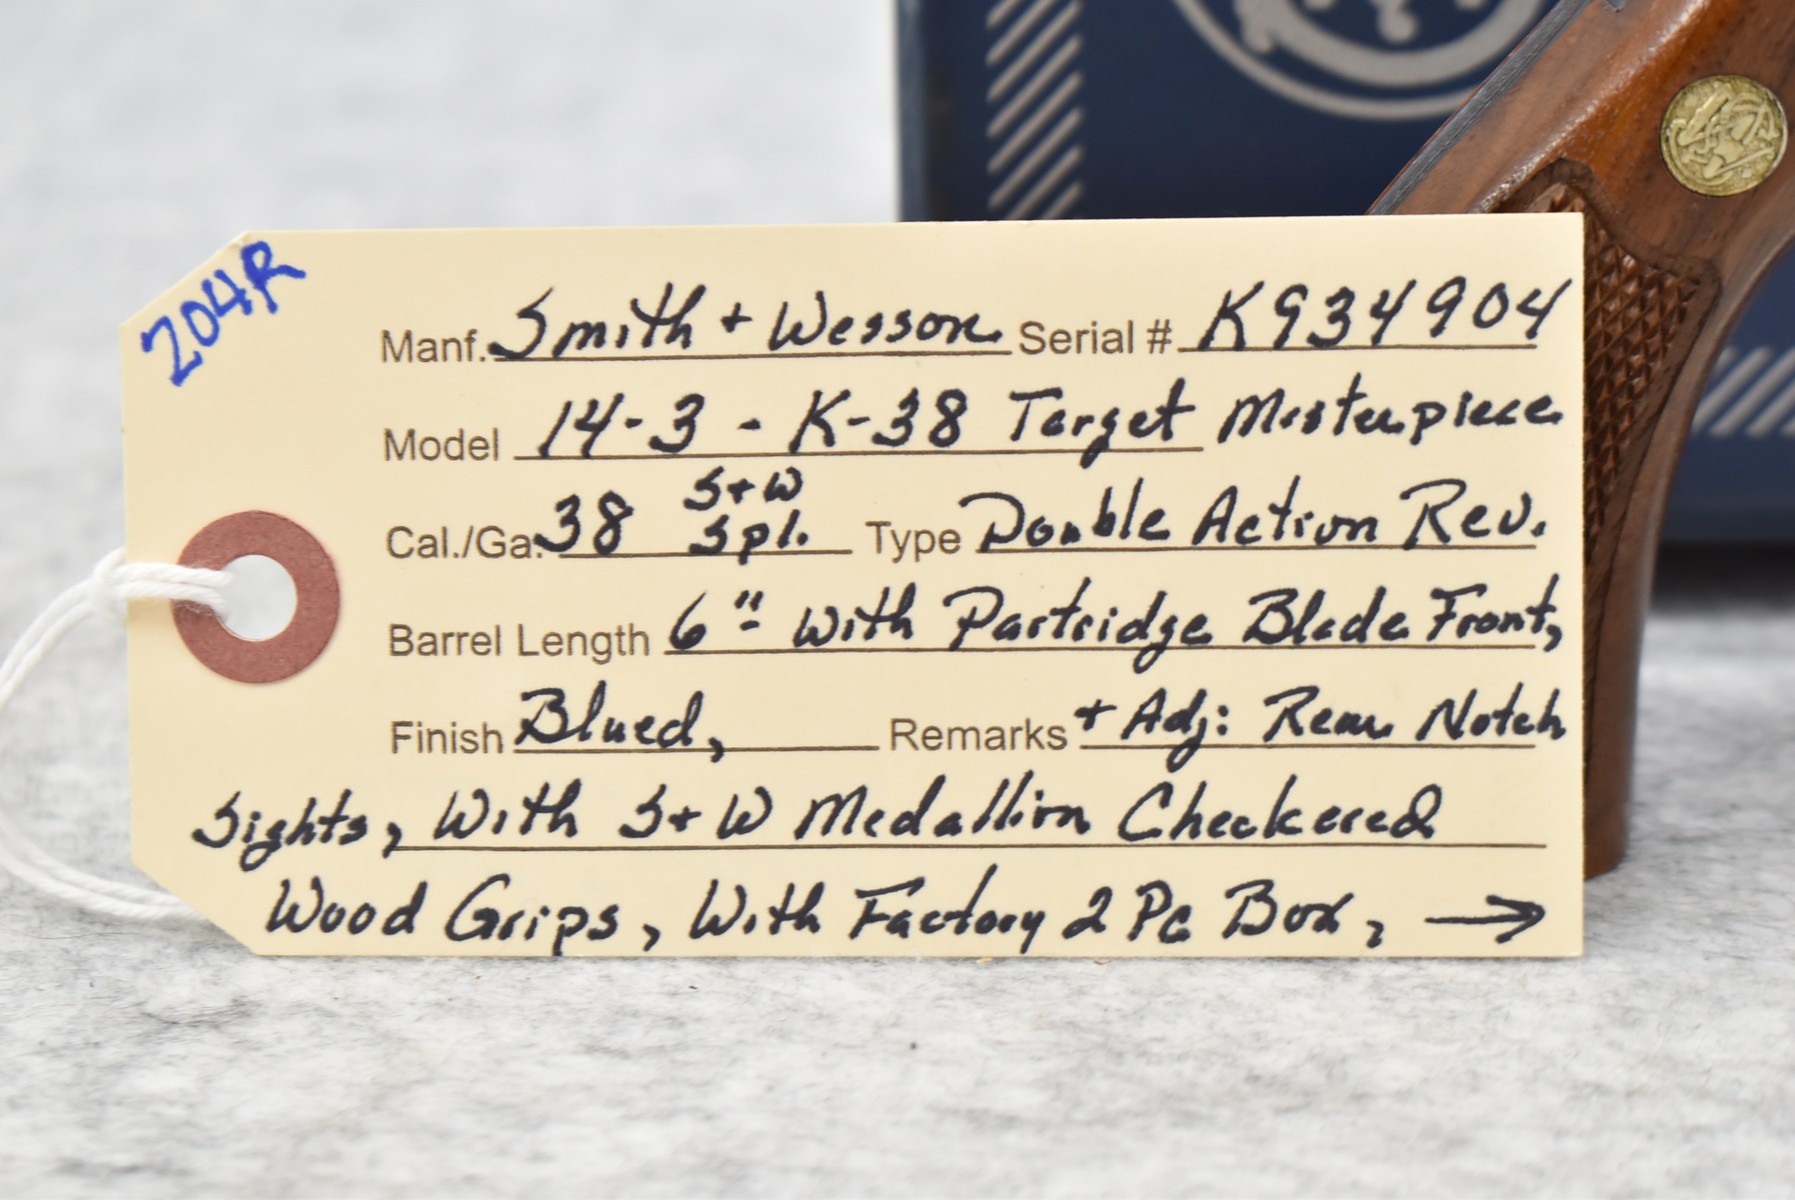 204R
Manf. Smith + Wesson Serial # K934904
Model 14-3 - K-38 Target Masterpiece
Cal./Ga. 38 S+W Spl. Type Double Action Rev.
Barrel Length 6" with Partridge Blade Front,
Finish Blued, Remarks + Adj: Rear Notch
Sights, With S+W Medallion Checkered
Wood Grips, With Factory 2 Pc Box, →